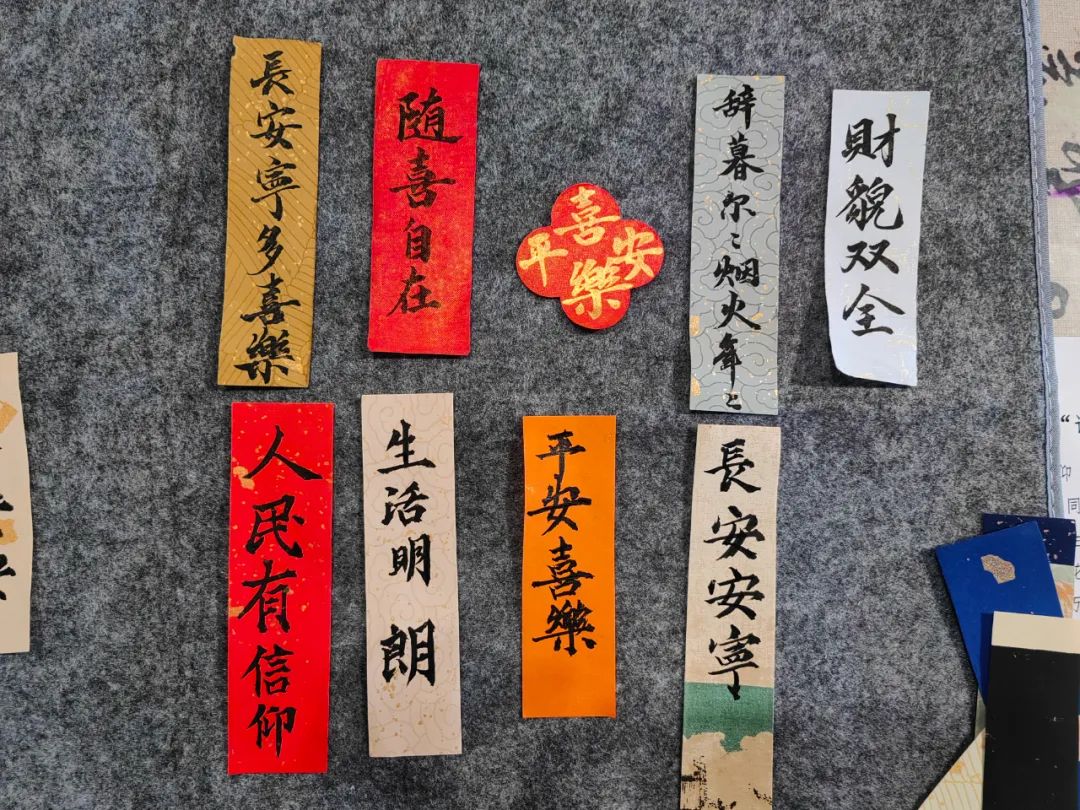 長安寧多喜樂
随喜自在
平安喜樂
辞暮尔〻烟火年〻
財貌双全
人民有信仰
生活明朗
平安喜樂
長安安寧